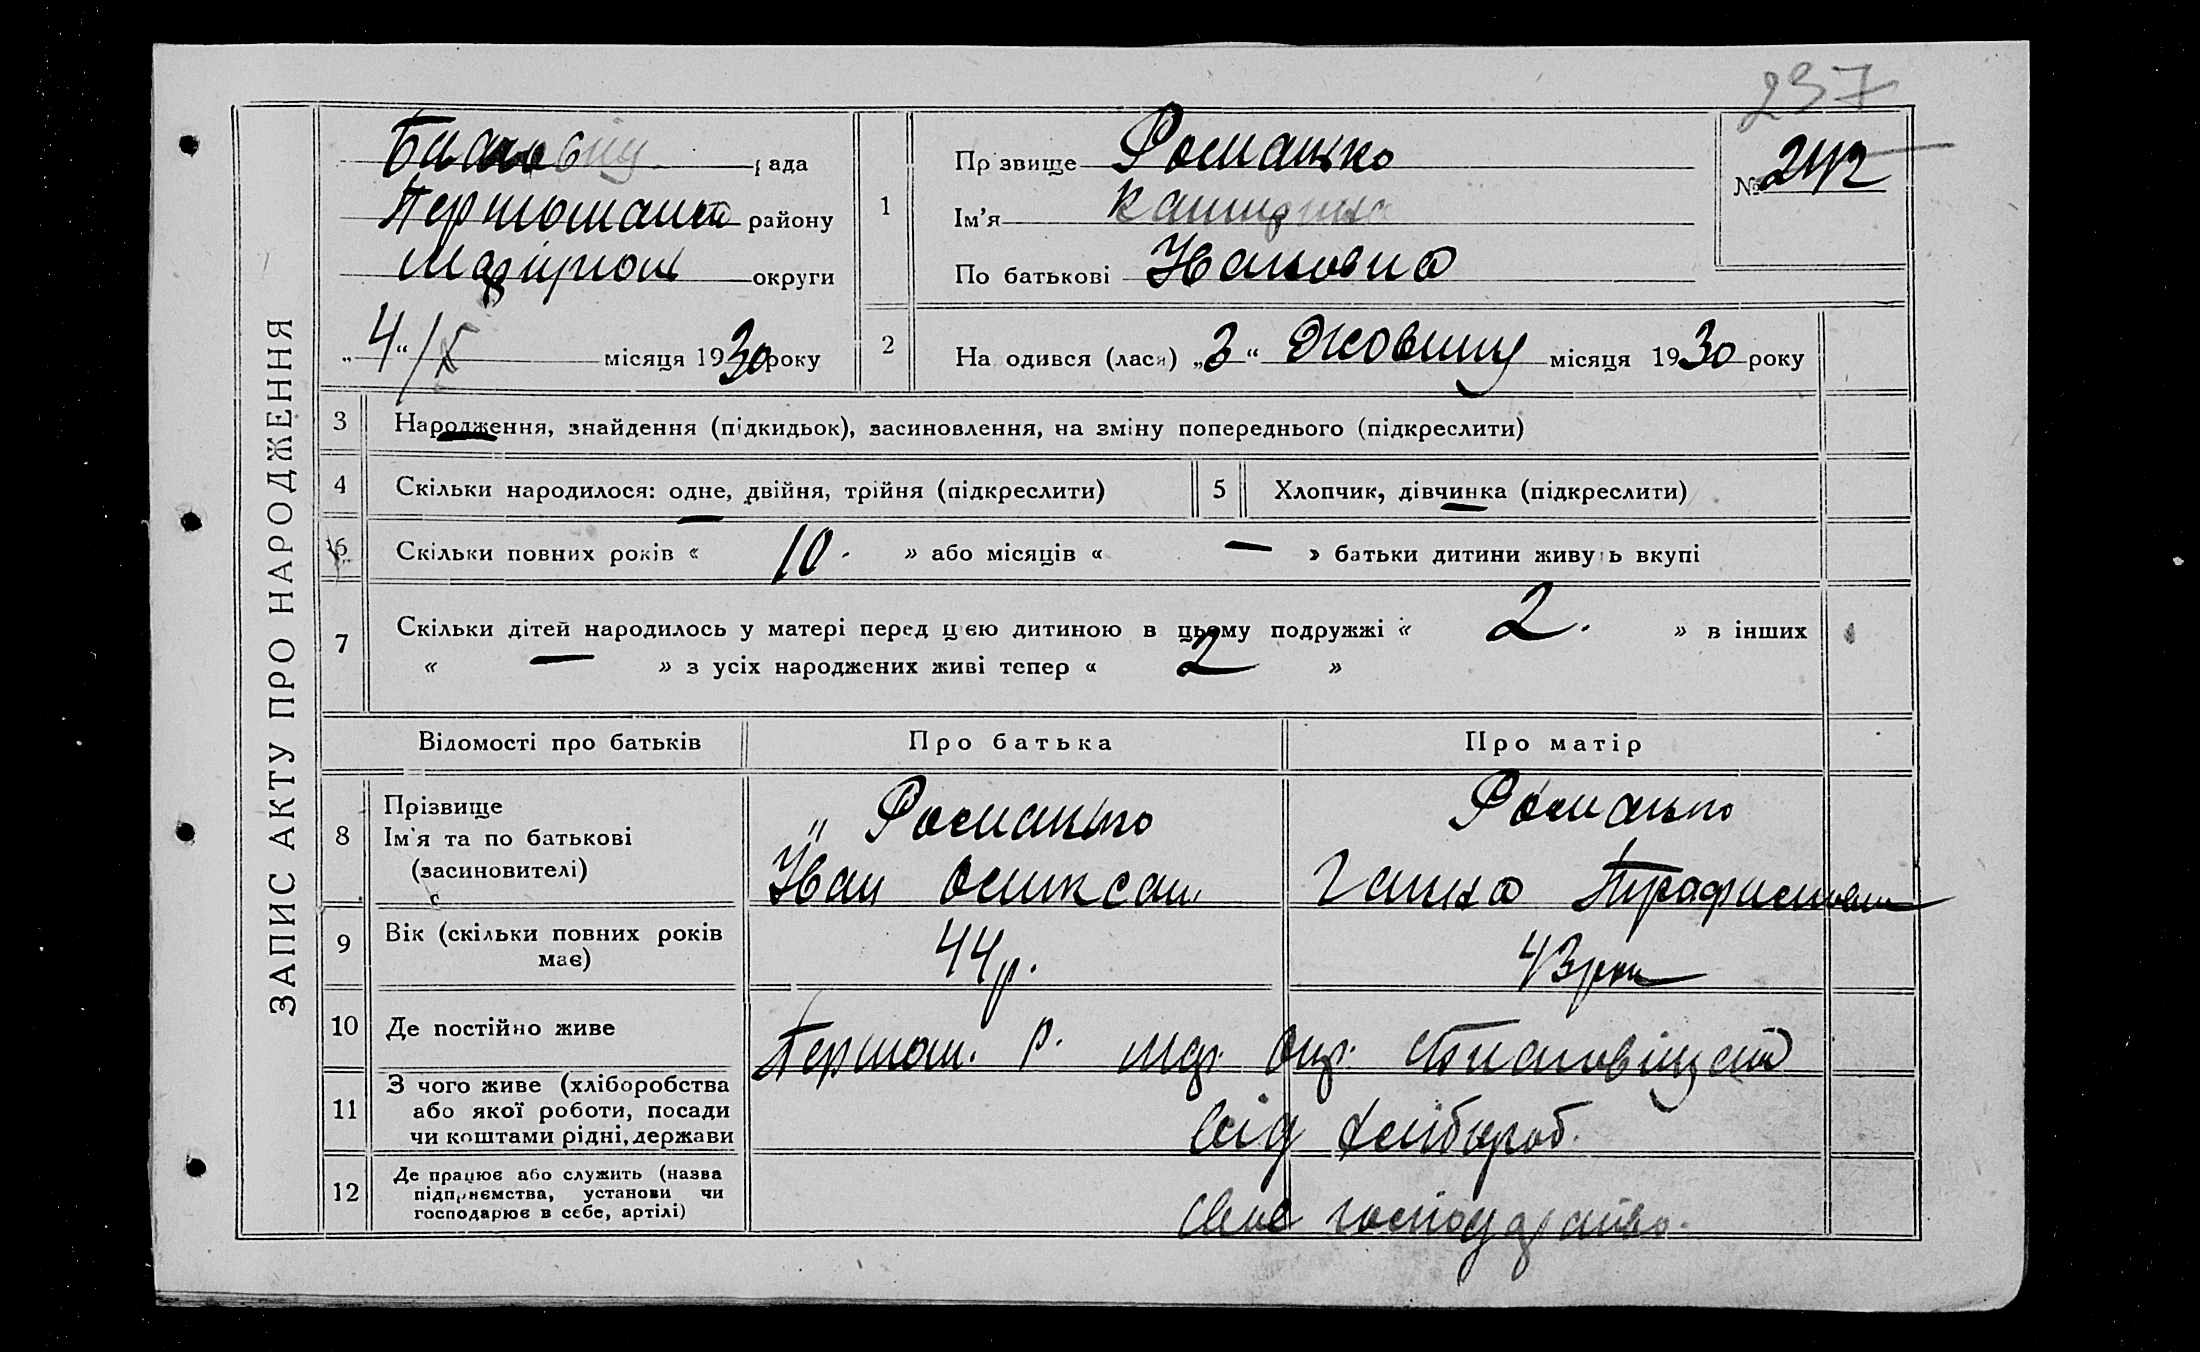 237
ЗАПИС АКТУ ПРО НАРОДЖЕННЯ
рада
району
округи
„4“ /X місяця 1930 року
1
Прізвище Ромацько
Ім’я
По батькові Ивановна
№ 242
2
Народився (лася) „3“ Жовтню місяця 1930 року
3 Народження, знайдення (підкидьок), засиновлення, на зміну попереднього (підкреслити)
4 Скільки народилося: одне, двійня, трійня (підкреслити)
5 Хлопчик, дівчинка (підкреслити)
6 Скільки повних років « 10. » або місяців « — » батьки дитини живуть вкупі
7 Скільки дітей народилось у матері перед цією дитиною в цьому подружжі « 2. » в інших
« — » з усіх народжених живі тепер « 2 »
Відомості про батьків
Про батька
Про матір
8
Прізвище
Ім'я та по батькові
(засиновителі)
Ромацько
Иван
Ромацько
Ганна
9
Вік (скільки повних років
має)
44 р.
43 роки
10 Де постійно живе
р.
11
З чого живе (хліборобства
або якої роботи, посади
чи коштами рідні, держави
від хлібороб.
12
Де працює або служить (назва
підприємства, установи чи
господарює в себе, артілі)
своє господарство.